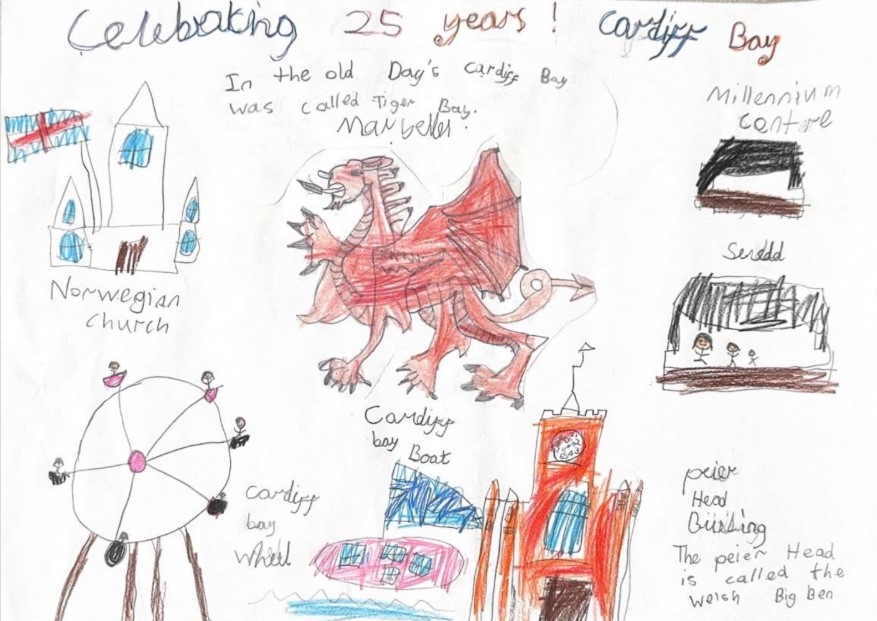 Celebrating 25 years! Cardiff Bay
In the old Day's Cardiff Bay
was called Tiger Bay.
Millennium
centre
Norwegian
church
Senedd
Cardiff
bay
Boat
Cardiff
bay
wheel
peier
Head
Building
The peier Head
is called the
welsh Big Ben